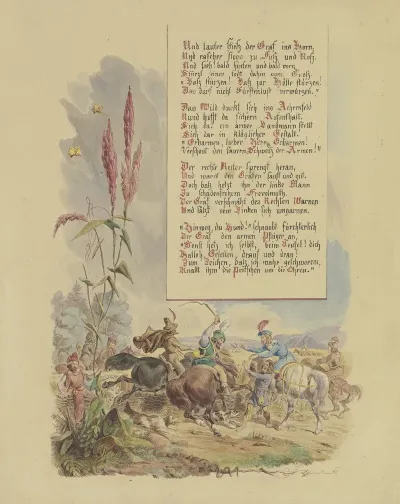 Und lauter stieß der Graf ins Horn,
Und rascher flogs zu Fuß und Roß,
Und sieh! bald hinten und bald vorn
Stürzt einer todt dahin vom Troß.
"Laß stürzen! Laß zur Hölle stürzen!
Das darf nicht Fürstenlust verwürzen."
Das Wild duckt sich ins Aehrenfeld
Und hofft da sichern Aufenthalt.
Sieh da, ein armer Landmann stellt
Sich dar in kläglicher Gestalt.
"Erbarmen, lieber Herr, Erbarmen!
Verschont den sauern Schweiß der Armen!"
Der rechte Reiter sprengt heran,
Und warnt den Grafen sanft und gut.
Doch baß hetzt ihn der linke Mann
Zu schadenfrohem Frevelmuth.
Der Graf verschmäht des Rechten Warnen
Und läßt vom Linken sich umgarnen.
"Hinweg, du Hund!" schnaubt fürchterlich
Der Graf den armen Pflüger an,
"Sonst hetz ich selbst, beim Teufel! dich
Halloh, Gesellen, drauf und dran!
Zum Zeichen, daß ich wahr geschworen,
Knallt ihm die Peitschen um die Ohren."